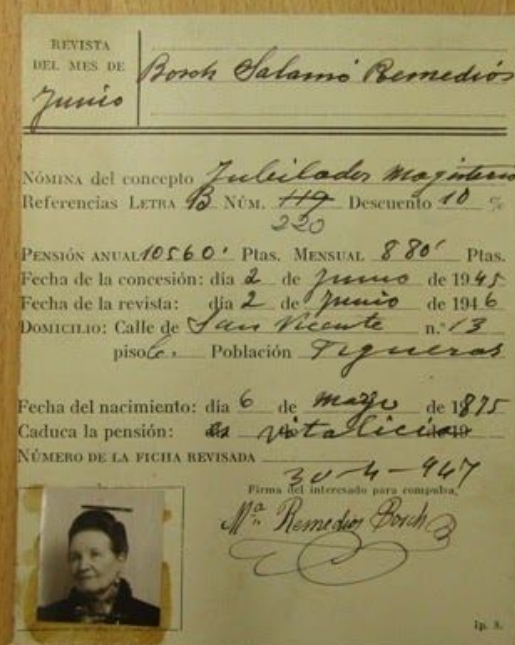 REVISTA
DEL MES DE
Junio
Bosch Salamó Remedios
NÓMINA del concepto Jubilados Magisterio
Referencias LETRA B NÚM. 119 Descuento 10 %
220
PENSIÓN ANUAL 10560' Ptas. MENSUAL 880' Ptas.
Fecha de la concesión: día 2 de Junio de 1945
Fecha de la revista: día 2 de Junio de 1946
DOMICILIO: Calle de San Vicente n.º 13
piso Población Figueras
Fecha del nacimiento: día 6 de mayo de 1875
Caduca la pensión: es vitalicia
NÚMERO DE LA FICHA REVISADA
30-4-947
Firma del interesado para compulsa,
Mª Remedios Bosch
Ip. S.